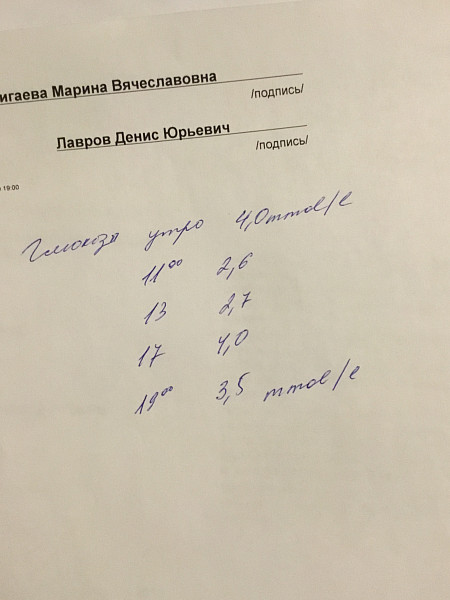 игаева Марина Вячеславовна
/подпись/
Лавров Денис Юрьевич
/подпись/
19:00
Глюкоза утро 4,0 mmol/l
11⁰⁰ 2,6
13 2,7
17 4,0
19⁰⁰ 3,5 mmol/l